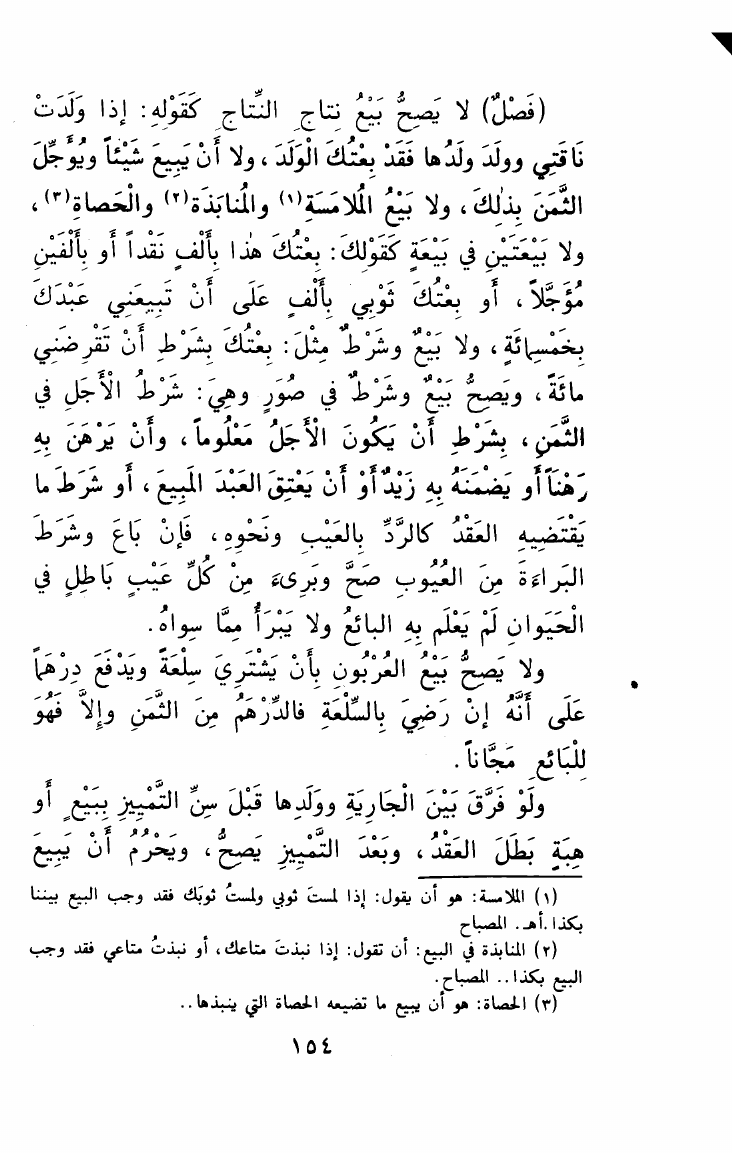 (فَصْلٌ) لا يَصِحُّ بَيْعُ نِتاجِ النِّتاجِ كَقَوْلِهِ: إذا وَلَدَتْ
نَاقَتِي وولَدَ ولَدُها فَقَدْ بِعْتُكَ الْوَلَدَ، ولا أَنْ يَبِيعَ شَيْئاً ويُؤَجِّلَ
الثَّمَنَ بِذٰلِكَ، ولا بَيْعُ المُلامَسَةِ(١) والمُنابَذَة(٢) والْحَصاةِ(٣)،
ولا بَيْعَتَيْنِ في بَيْعَةٍ كَقَوْلِكَ: بِعْتُكَ هٰذا بِأَلْفٍ نَقْداً أو بِأَلْفَيْنِ
مُؤَجَّلاً، أو بِعْتُكَ ثَوْبِي بِأَلْفٍ عَلَى أنْ تَبِيعَنِي عَبْدَكَ
بِخَمْسِمائَةٍ، ولا بَيْعٌ وشَرْطٌ مِثْلَ: بِعْتُكَ بِشَرْطِ أنْ تَقْرِضَنِي
مائَةً، ويَصِحُّ بَيْعٌ وشَرْطٌ في صُوَرٍ وهِيَ: شَرْطُ الأَجَلِ في
الثَّمَنِ، بِشَرْطِ أنْ يَكُونَ الأَجَلُ مَعْلُوماً، وأنْ يَرْهَنَ بِهِ
رَهْناً أو يَضْمَنَهُ بِهِ زَيْدٌ أوْ أنْ يَعْتِقَ العَبْدَ المَبِيعَ، أو شَرَطَ ما
يَقْتَضِيهِ العَقْدُ كالرَّدِّ بِالعَيْبِ ونَحْوِهِ، فَإنْ بَاعَ وشَرَطَ
البَراءَةَ مِنَ العُيُوبِ صَحَّ وبَرِىءَ مِنْ كُلِّ عَيْبٍ بَاطِلٍ في
الْحَيَوانِ لَمْ يَعْلَم بِهِ البائعُ ولا يَبْرَأُ مِمَّا سِواهُ.
ولا يَصِحُّ بَيْعُ العُرْبُونِ بِأنْ يَشْتَرِيَ سِلْعَةً ويَدْفَعَ دِرْهَماً
عَلَى أنَّهُ إنْ رَضِيَ بِالسِّلْعَةِ فالدِّرْهَمُ مِنَ الثَّمَنِ وإلاَّ فَهُوَ
لِلْبَائعِ مَجَّاناً.
ولَوْ فَرَّقَ بَيْنَ الْجَارِيَةِ وولَدِها قَبْلَ سِنِّ التَّمْيِيزِ بِبَيْعٍ أو
هِبَةٍ بَطَلَ العَقْدُ، وبَعْدَ التَّمْيِيزِ يَصِحُّ، ويَحْرُمُ أنْ يَبِيعَ
(١) الملامسة: هو أن يقول: إذا لمستَ ثوبي ولمستُ ثوبَك فقد وجب البيع بيننا
بكذا. أهـ. المصباح
(٢) المنابذة في البيع: أن تقول: إذا نبذتَ متاعك، أو نبذتُ متاعي فقد وجب
البيع بكذا.. المصباح.
(٣) الحصاة: هو أن يبيع ما تضيعه الحصاة التي ينبذها..
١٥٤